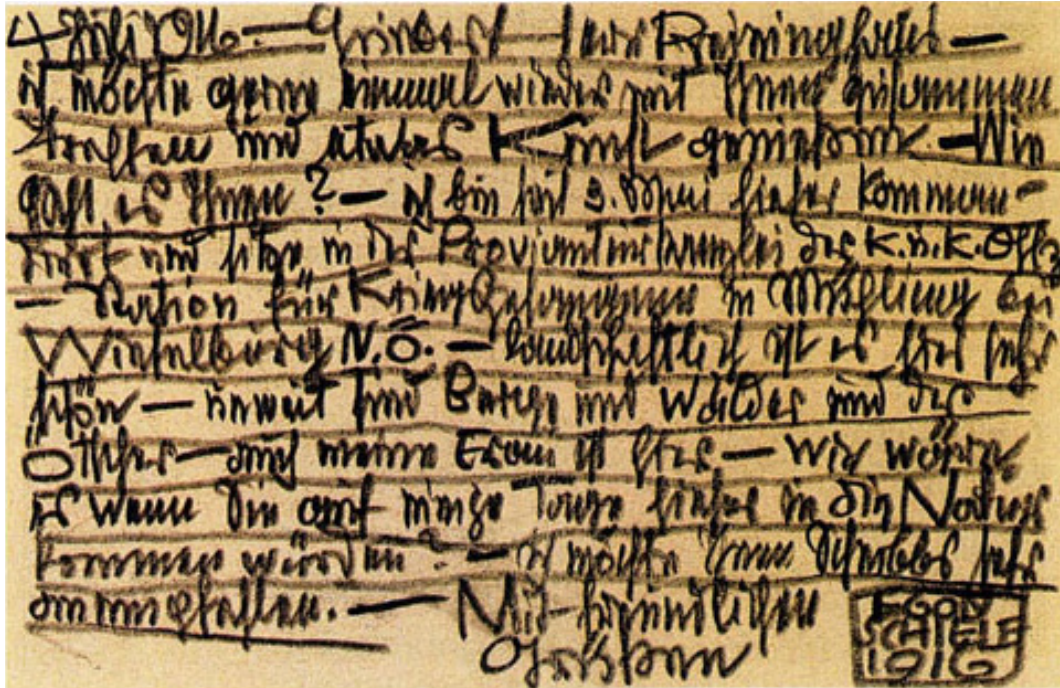 4 Juli 916. — Herr Reininghaus —
ich möchte gerne einmal wieder mit Ihnen zusammen
treffen und etwas Kunst genießen. — Wie
geht es Ihnen? — ich bin seit 3. Mai hieher komman-
diert und sitze in der der K.u.K. Offz.
— Station für Kriegsgefangene in Mühling bei
Wieselburg N.Ö. — landschaftlich ist es hier sehr
schön — unweit sind Berge und Wälder und der
Ötscher — auch meine Frau ist hier — wie wäre
es wenn Sie auf einige Tage hieher in die Natur
kommen würden? — ich möchte Ihnen Scheibbs sehr
anempfehlen. — Mit freundlichen
Grüßen
EGON
SCHIELE
1916